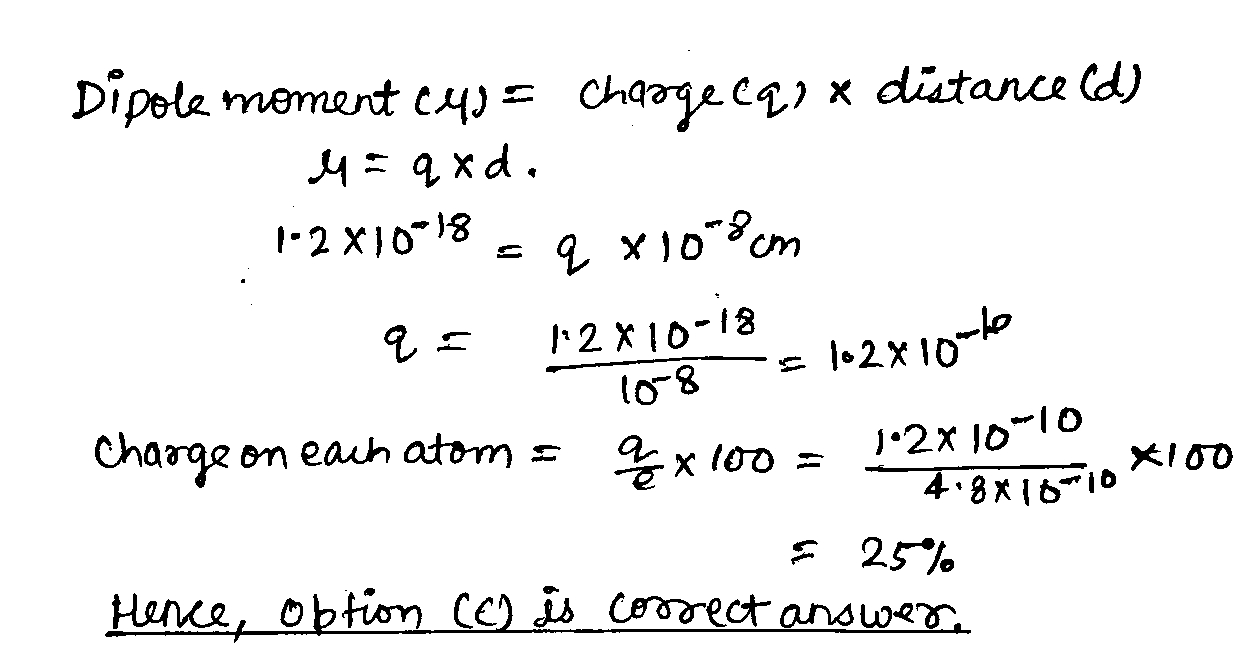 Dipole moment (μ) = charge (q) × distance (d)
μ = q × d.
1.2 × 10⁻¹⁸ = q × 10⁻⁸ cm
q = 1.2 × 10⁻¹⁸ / 10⁻⁸ = 1.2 × 10⁻¹⁰
Charge on each atom = q/e × 100 = 1.2 × 10⁻¹⁰ / 4.8 × 10⁻¹⁰ × 100
= 25%
Hence, option (c) is correct answer.